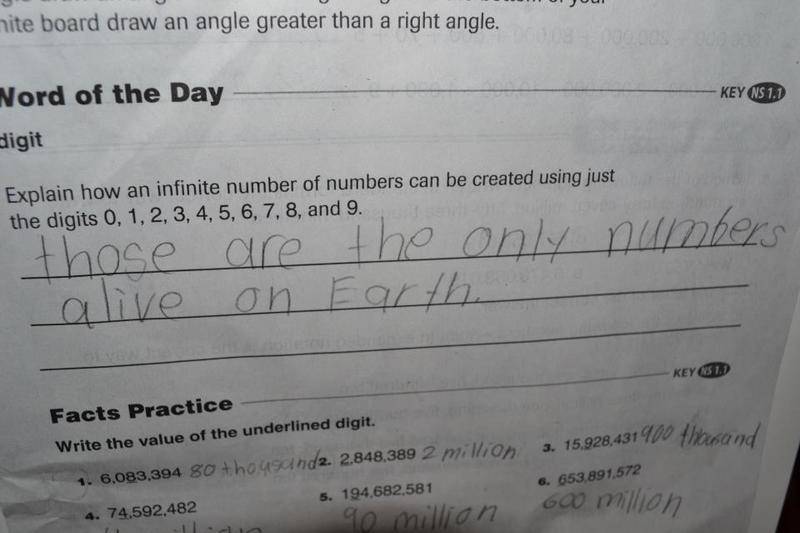 hite board draw an angle greater than a right angle.
Word of the Day KEY NS 1.1
digit
Explain how an infinite number of numbers can be created using just
the digits 0, 1, 2, 3, 4, 5, 6, 7, 8, and 9.
those are the only numbers
alive on Earth.
KEY NS 1.1
Facts Practice
Write the value of the underlined digit.
1. 6,083,394 80 thousand 2. 2,848,389 2 million 3. 15,928,431 900 thousand
4. 74,592,482 5. 194,682,581 6. 653,891,572
90 million 600 million